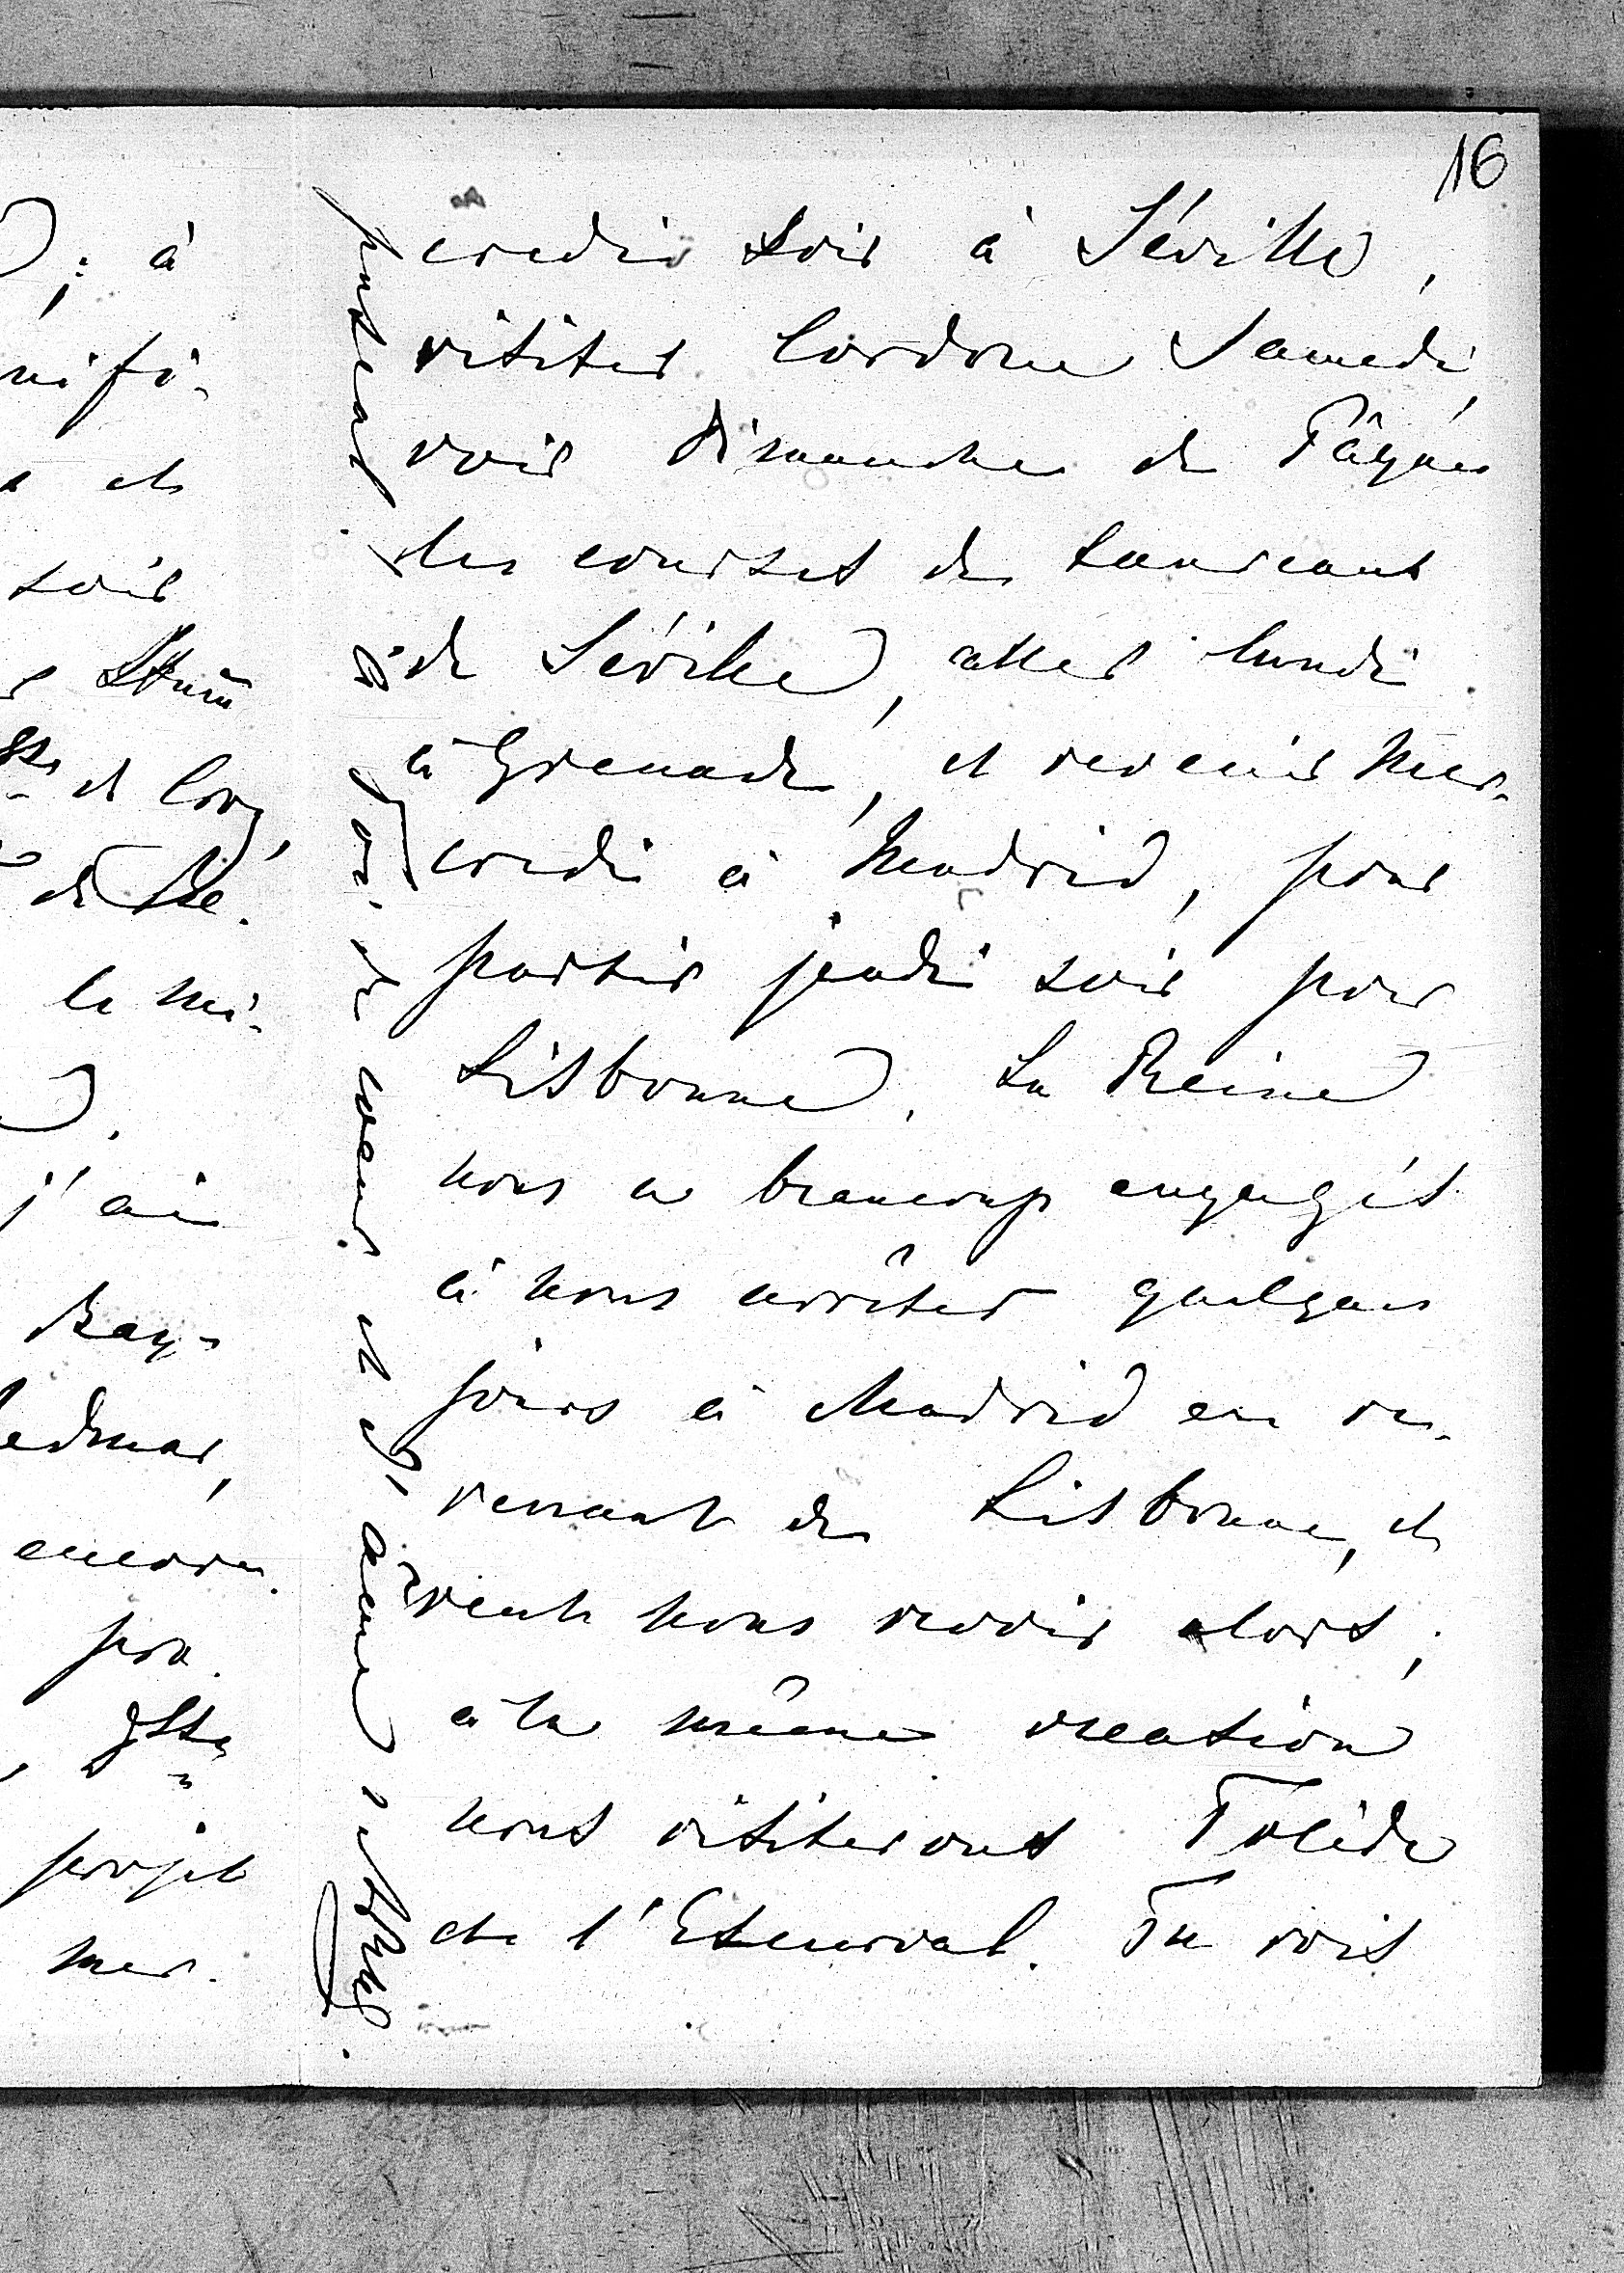 16
credi soir à Séville,
visiter Cordoue Samedi,
voir Dimanche de Pâques
les courses de taureaux
de Séville, aller lundi
à Grenade, et revenir Mer-
credi à Madrid, pour
partir jeudi soir pour
Lisbonne. La Reine
nous a beaucoup engagés
à nous arrêter quelques
jours à Madrid en re-
venant de Lisbonne, et
veut nous revoir alors;
à la même occasion
nous visiterons Tolède
et l'Escurial. Tu vois
; à
nifi-
et
soir
de Cory,
de
le mi-
j'ai
Bay-
edmar,
encore
pro
projet
mer-
coeur et d'âme